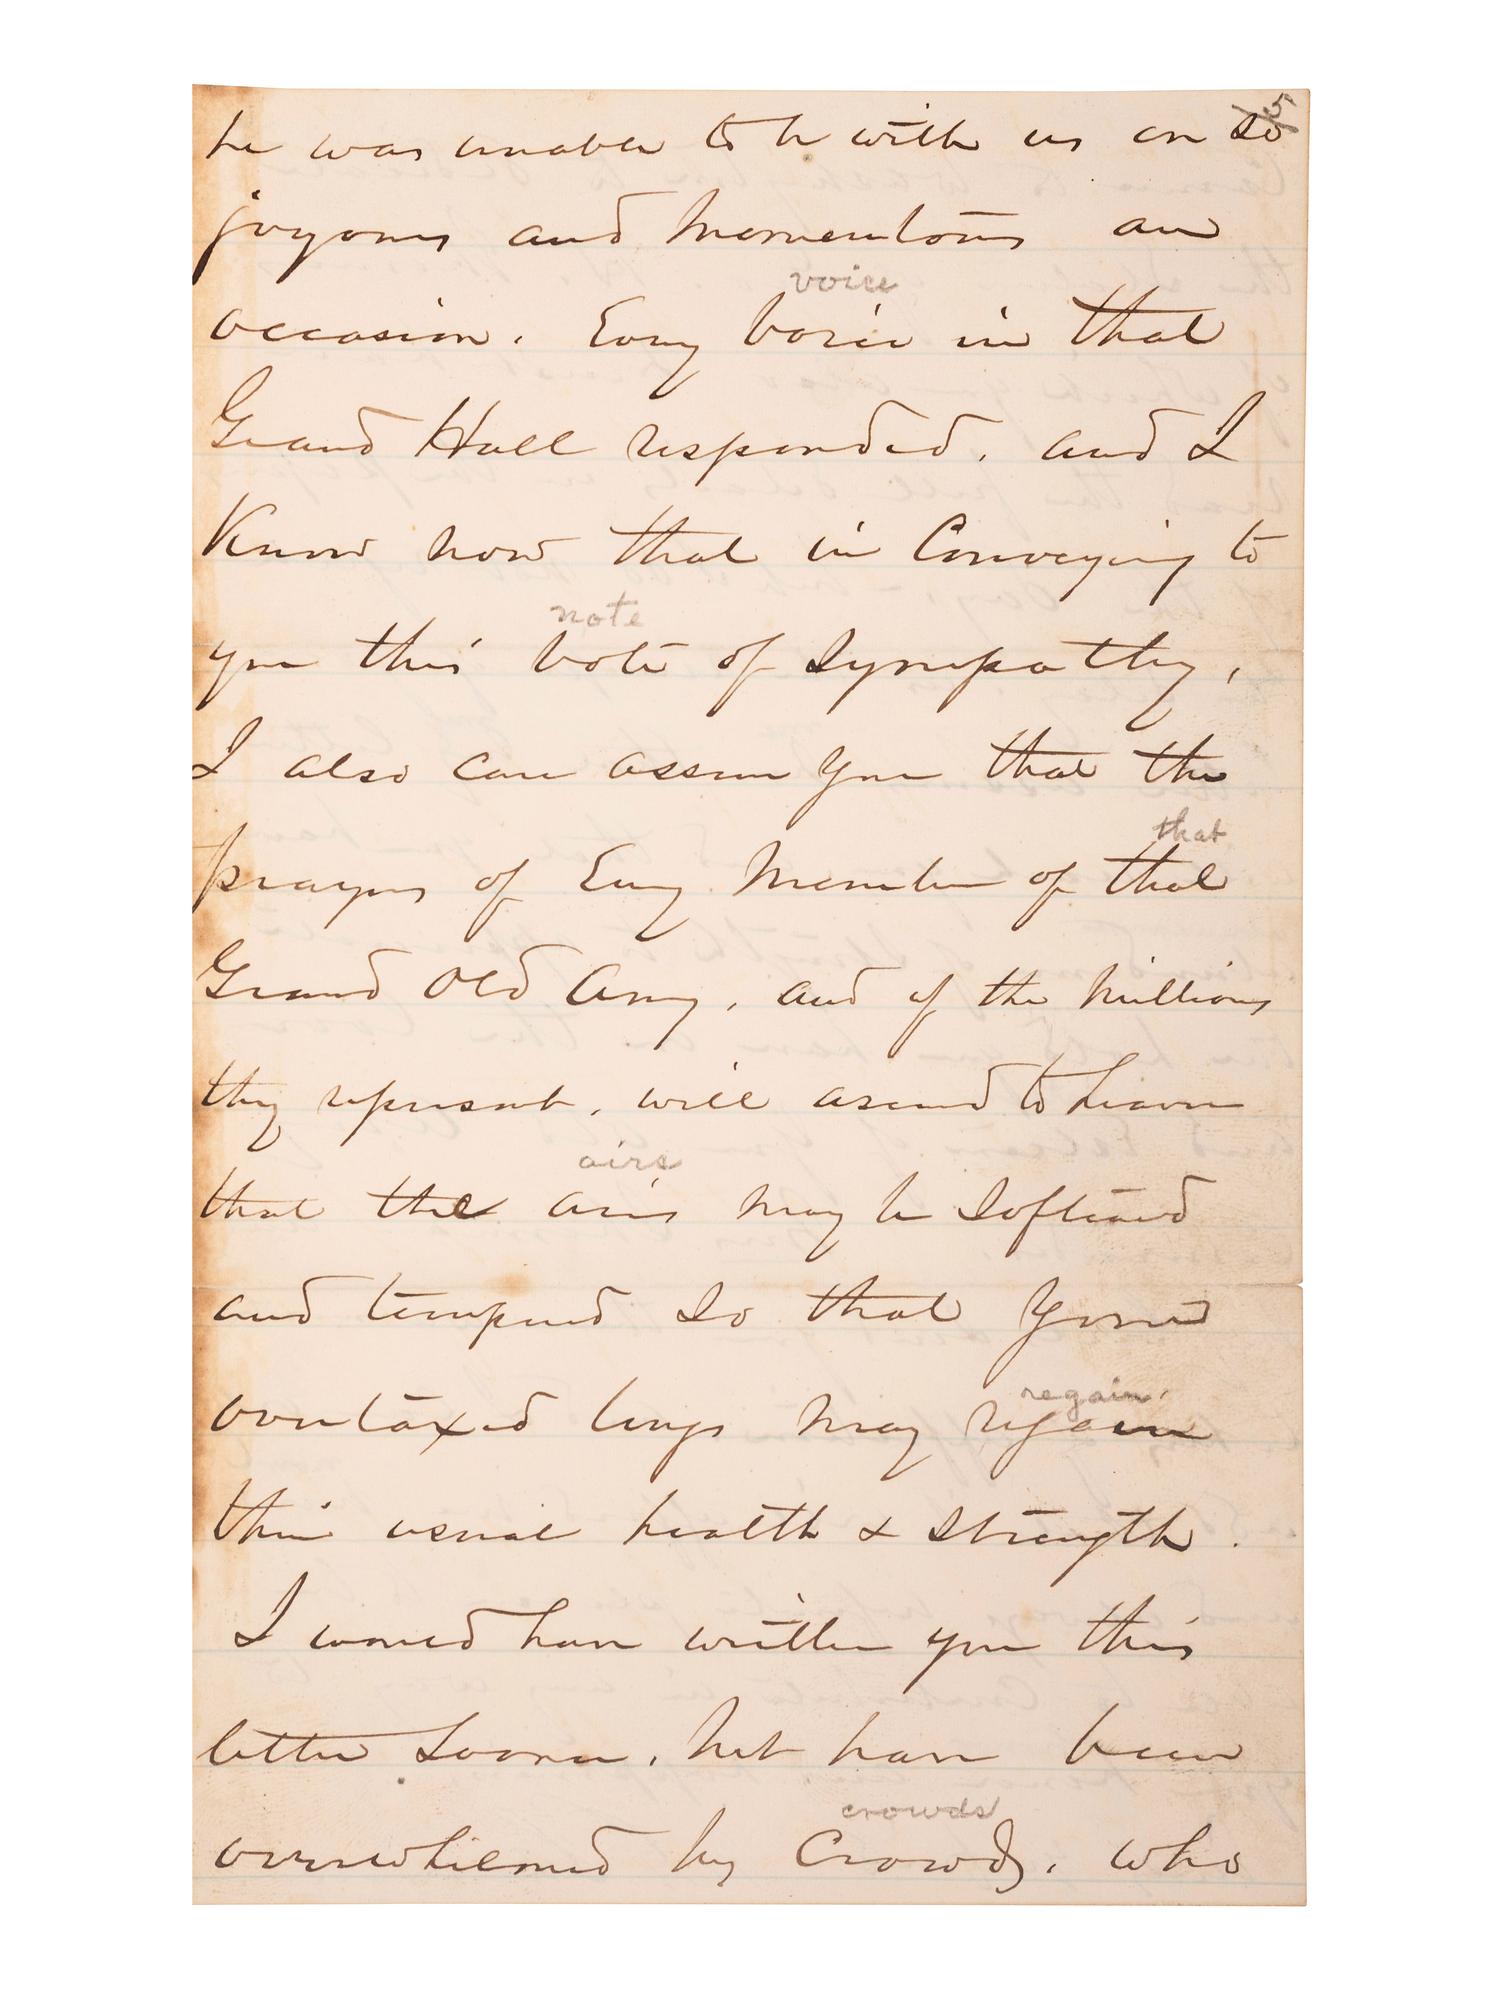 5
he was unable to be with us on so
joyous and momentous an
voice
occasion. Every voice in that
Grand Hall responded, and I
Know now that in Conveying to
note
you this vote of Sympathy,
I also can assure you that the
that
prayers of Every Member of that
Grand Old Army, and of the Millions
they represent, will ascend to heaven
airs
that the airs may be Softened
and tempered So that your
regain
overtaxed lungs may regain
their usual health & Strength.
I would have written you this
letter Sooner, but have been
crowds
overwhelmed by Crowds, who